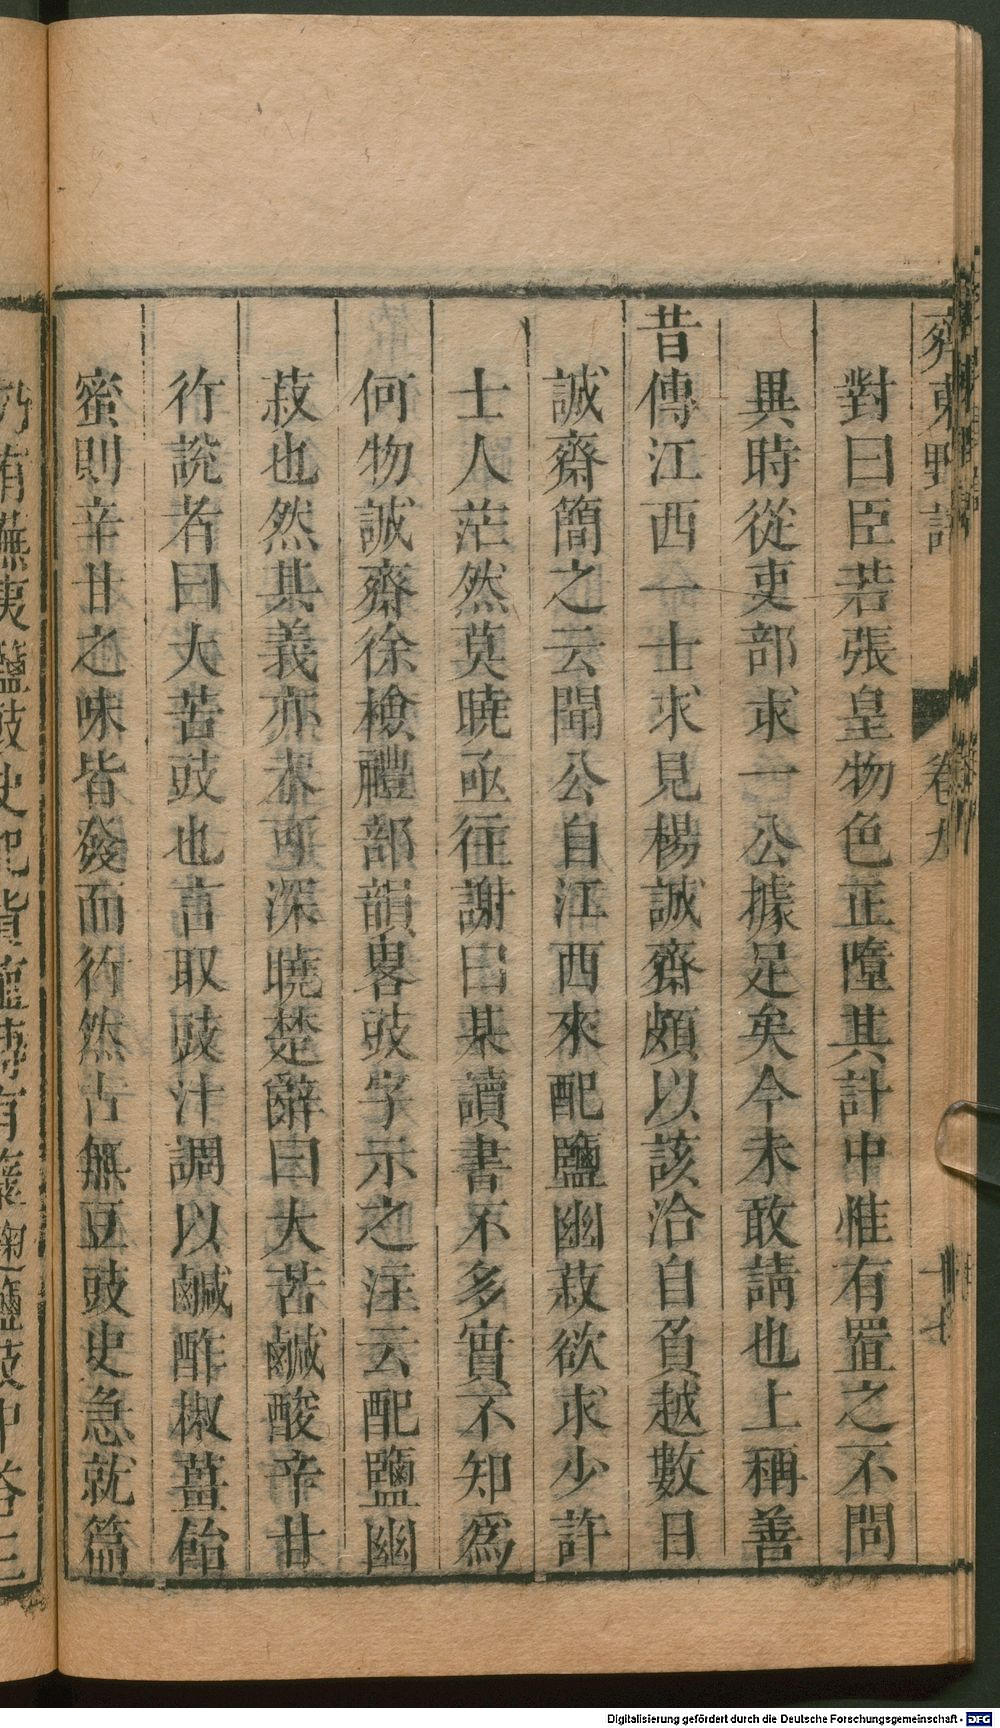 齊東野語 卷九 十七
對曰臣若張皇物色正墮其計中惟有置之不問
異時從吏部求一公據足矣今未敢請也上稱善
昔傳江西一士求見楊誠齋頗以該洽自負越數日
誠齋簡之云聞公自江西來配鹽幽菽欲求少許
士人茫然莫曉亟往謝曰某讀書不多實不知爲
何物誠齋徐檢禮部韻畧豉字示之注云配鹽幽
菽也然其義亦未可深曉楚辭曰大苦鹹酸辛甘
行說者曰大苦豉也言取豉汁調以鹹酢椒薑飴
蜜則辛甘之味皆發而行然古無豆豉史急就篇
乃有蕪夷鹽豉史記貨殖傳有糵麴鹽豉中答三
Digitalisierung gefördert durch die Deutsche Forschungsgemeinschaft - DFG